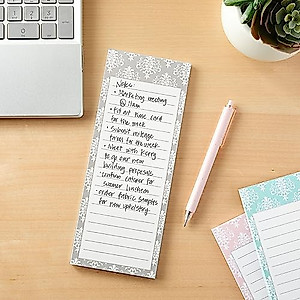 Notes:
• Marketing meeting
@ 11am
• Fill out time card
for the week
• Submit mileage
form for the week
• Meet with Kerry
to go over new
building proposals
• confirm caterer for
summer luncheon
• order fabric samples
for new upholstery